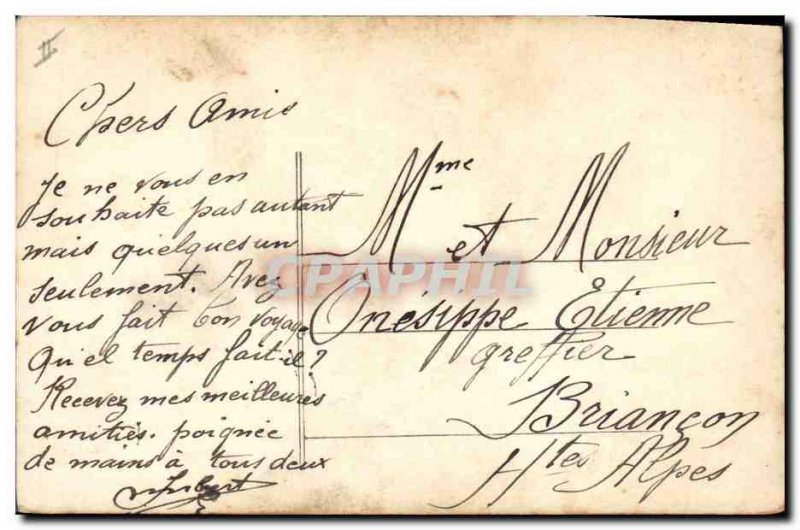 II
Chers Amis
Je ne vous en
souhaite pas autant
mais quelques un
seulement. Avez
vous fait bon voyage
Qu'el temps fait-il?
Recevez mes meilleures
amitiés. poignée
de mains à tous deux
Mme et Monsieur
Onésippe Etienne
greffier
Briançon
Htes Alpes
CPAPHIL